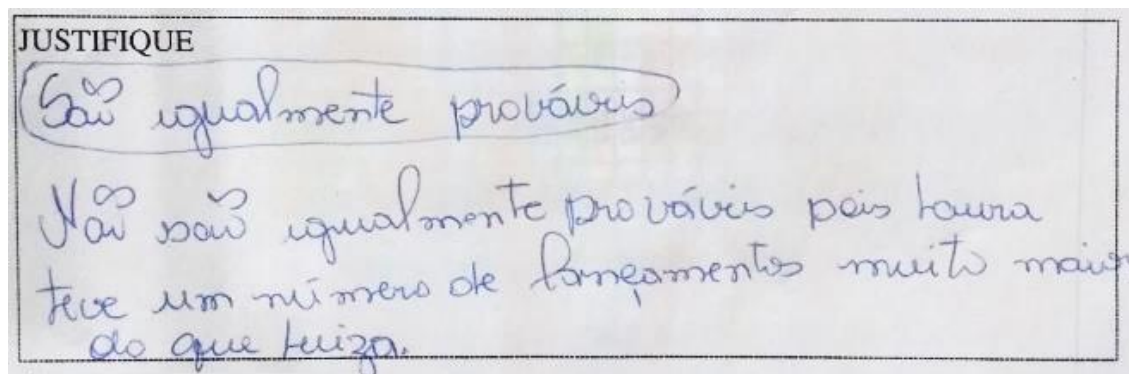 JUSTIFIQUE
São igualmente prováveis
Não são igualmente prováveis pois Laura
teve um número de lançamentos muito maior
do que Luiza.